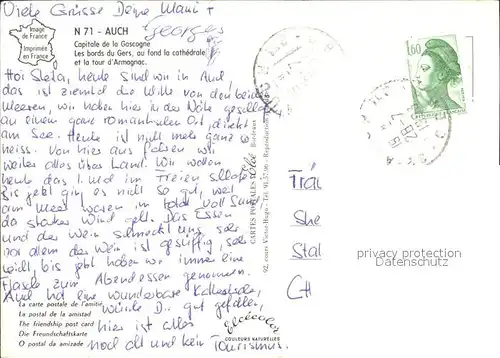 Viele Grüsse Deine Mami +
Georges
Image
de France
Imprimée
en France
N 71 - AUCH
Capitale de la Gascogne
Les bords du Gers, au fond la cathédrale
et la tour d'Armagnac.
Hoi heute sind wir in Auch,
das ist ziemlich die Mitte von den beiden
Meeren, wir haben hier in der Nähe geschlafen
an einem ganz romantischen Ort, direkt
am See. Heute ist nicht mehr ganz so
heiss. Von hier aus fahren wir
weiter alles über Land. Wir wollen
heute das 1. mal im Freien schlafen
Bis jetzt ging es nicht so gut, weil
am Meer waren im total voll Sand
da starker Wind geht. Das Essen
und der Wein schmeckt uns sehr
vor allem der Wein ist süffig, sehr
leicht, bis jetzt haben wir immer eine
Flasche zum Abendessen genommen.
Auch hat eine wunderbare Kathedrale,
würde D.. gut gefallen,
hier ist alles
noch alt und kein Tourismus.
La carte postale de l'amitié
La postal de la amistad
The friendship post card
Die Freundschaftskarte
O postal da amizade
COULEURS NATURELLES
CARTES POSTALES
Bordeaux
1,60
Trau
She
Stal
CH
privacy protection
www.ansichtskarten-lexikon.de